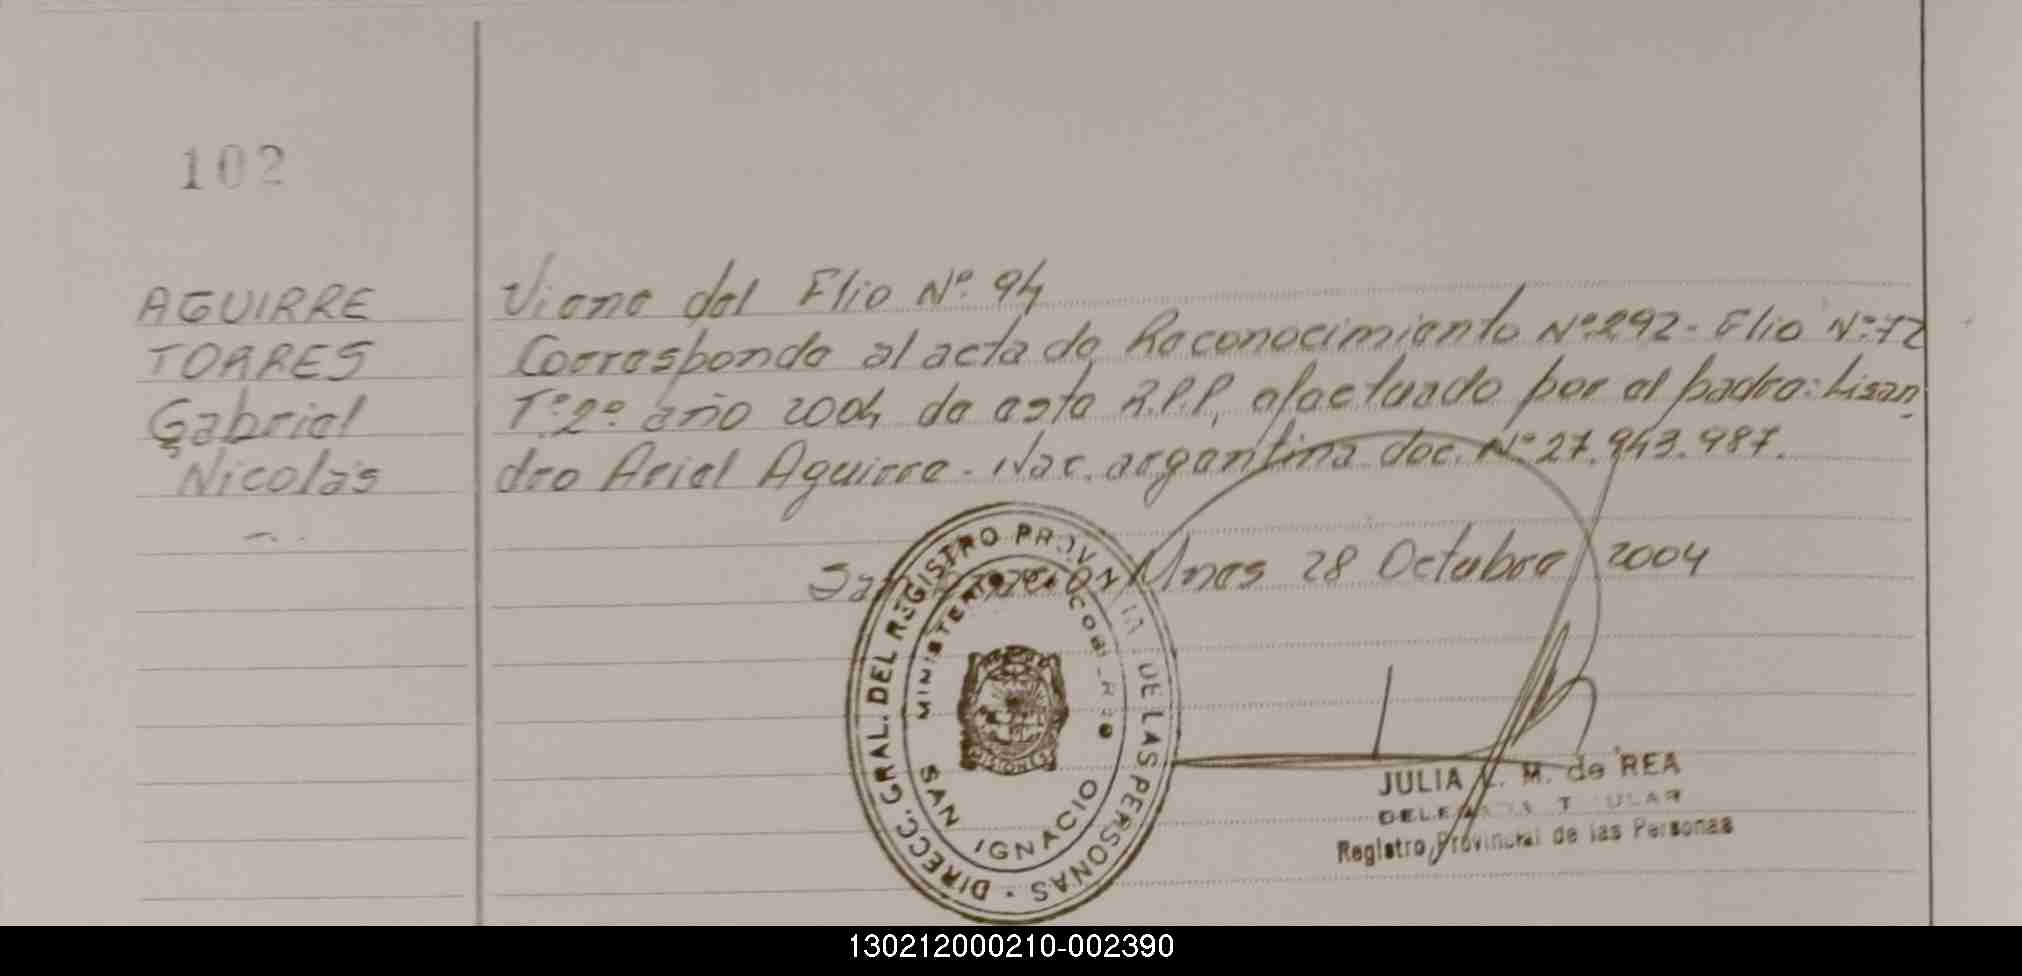 102
AGUIRRE
TORRES
Gabriel
Nicolás
Viene del Flio Nº 94
Corresponde al acta de Reconocimiento Nº 292 - Flio Nº 72
Tº 2º año 2004 de este R.P.P, efectuado por el padre: Lisan
dro Ariel Aguirre - Nac. argentina doc. Nº 27.943.987.
San Ignacio Mnes 28 Octubre 2004
DIRECC. GRAL. DEL REGISTRO PROVINCIAL DE LAS PERSONAS
MINISTERIO DE GOBIERNO
MISIONES
SAN IGNACIO
JULIA M. de REA
DELEGADA TITULAR
Registro Provincial de las Personas
130212000210-002390